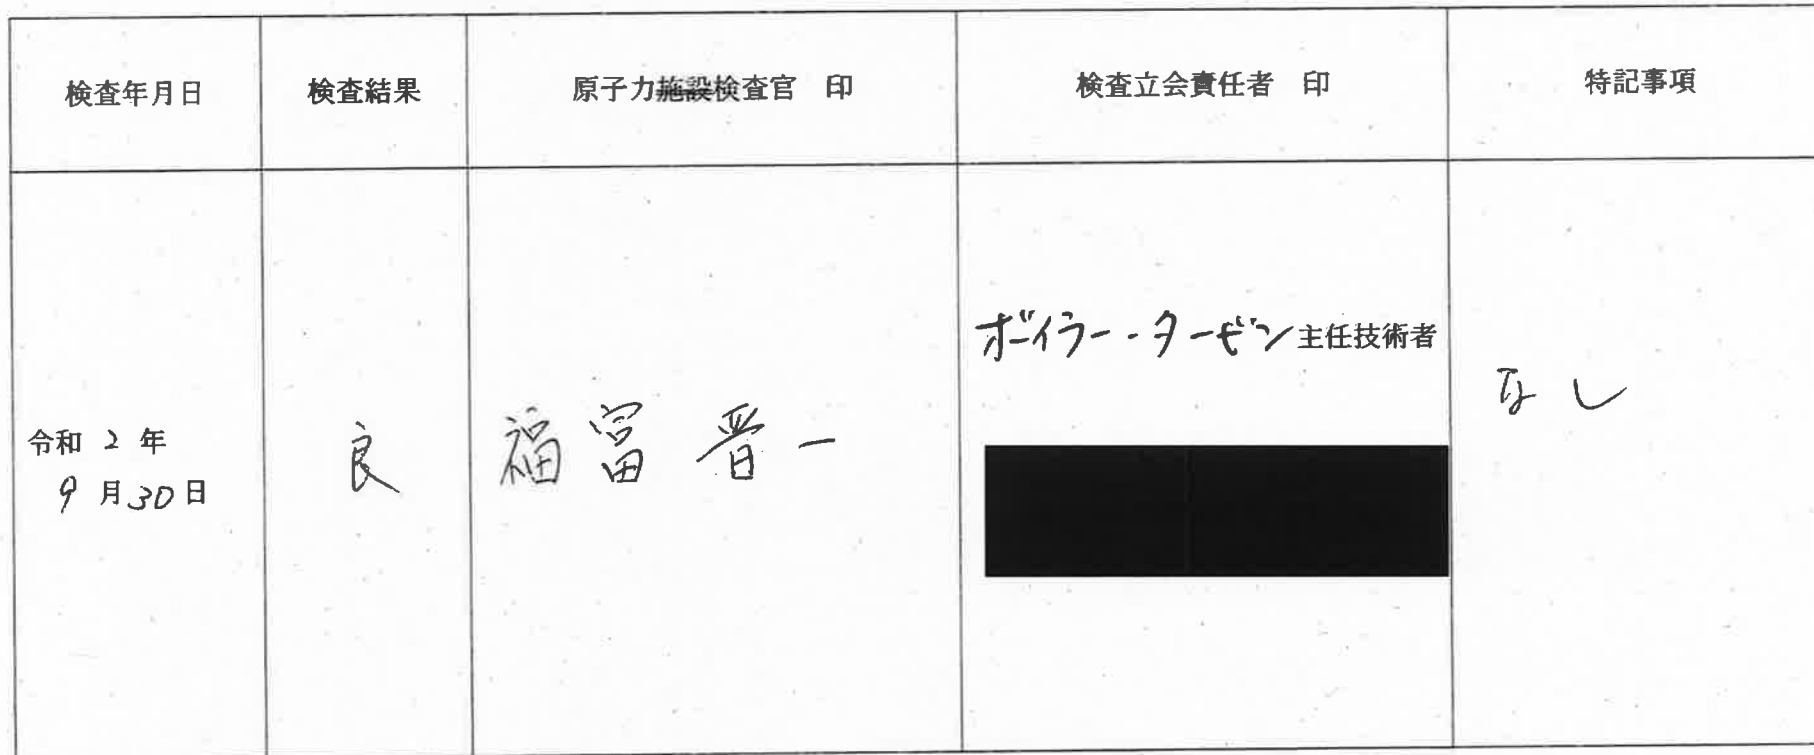 検査年月日
検査結果
原子力施設検査官 印
検査立会責任者 印
特記事項
令和 2 年
9 月 30 日
良
福冨晋一
ボイラー・タービン主任技術者
なし